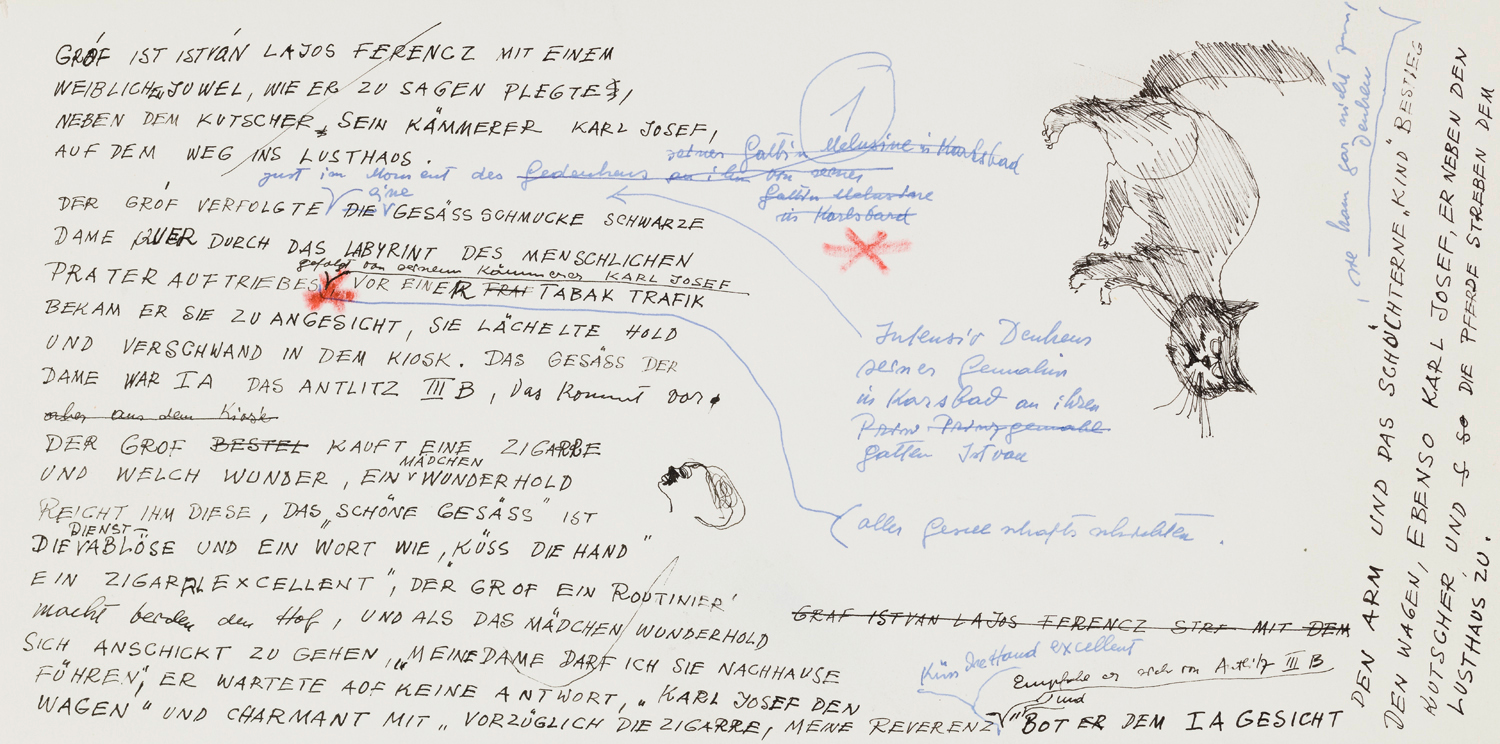 GRÓF IST ISTVÁN LAJOS FERENCZ MIT EINEM
WEIBLICHEN JUWEL, WIE ER ZU SAGEN PLEGTE,
NEBEN DEM KUTSCHER, SEIN KÄMMERER KARL JOSEF,
AUF DEM WEG INS LUSTHAUS.
1
seiner Gattin Melusine in Karlsbad
just im Moment des Gedenkens an ihn von seiner
Gattin Melusine
in Karlsbard
eine
DER GRÓF VERFOLGTE DIE GESÄSS SCHMUCKE SCHWARZE
DAME QUER DURCH DAS LABYRINT DES MENSCHLICHEN
gefolgt von seinem Kämmerer KARL JOSEF
PRATER AUFTRIEBES, VOR EINER TABAK TRAFIK
BEKAM ER SIE ZU ANGESICHT, SIE LÄCHELTE HOLD
UND VERSCHWAND IN DEM KIOSK. DAS GESÄSS DER
DAME WAR IA DAS ANTLITZ III B, Das kommt vor.
aus dem Kiosk
DER GROF BESTEL KAUFT EINE ZIGARRE
MÄDCHEN
UND WELCH WUNDER, EIN WUNDERHOLD
REICHT IHM DIESE, DAS "SCHÖNE GESÄSS" IST
DIENST-
DIE ABLÖSE UND EIN WORT WIE "KÜSS DIE HAND"
EIN ZIGARRL EXCELLENT", DER GROF EIN ROUTINIER
macht beiden den Hof, UND ALS DAS MÄDCHEN WUNDERHOLD
SICH ANSCHICKT ZU GEHEN, "MEINE DAME DARF ICH SIE NACHHAUSE
FÜHREN", ER WARTETE AUF KEINE ANTWORT, "KARL JOSEF DEN
WAGEN" UND CHARMANT MIT "VORZÜGLICH DIE ZIGARRE, MEINE REVERENZ" BOT ER DEM IA GESICHT
Intensiv Denkens
seiner Gemahlin
in Karsbad an ihren
Prinzgemahl
gatten Istvan
aller Gesellschaftsschichten.
GRAF ISTVAN LAJOS FERENCZ MIT DEM
Küss die Hand excellent
Empfahl er sich von Antlitz III B
und
DEN ARM UND DAS SCHÜCHTERNE "KIND" BESTIEG
DEN WAGEN, EBENSO KARL JOSEF, ER NEBEN DEN
KUTSCHER UND SO DIE PFERDE STREBEN DEM
LUSTHAUS ZU.
gar nicht zum
denken